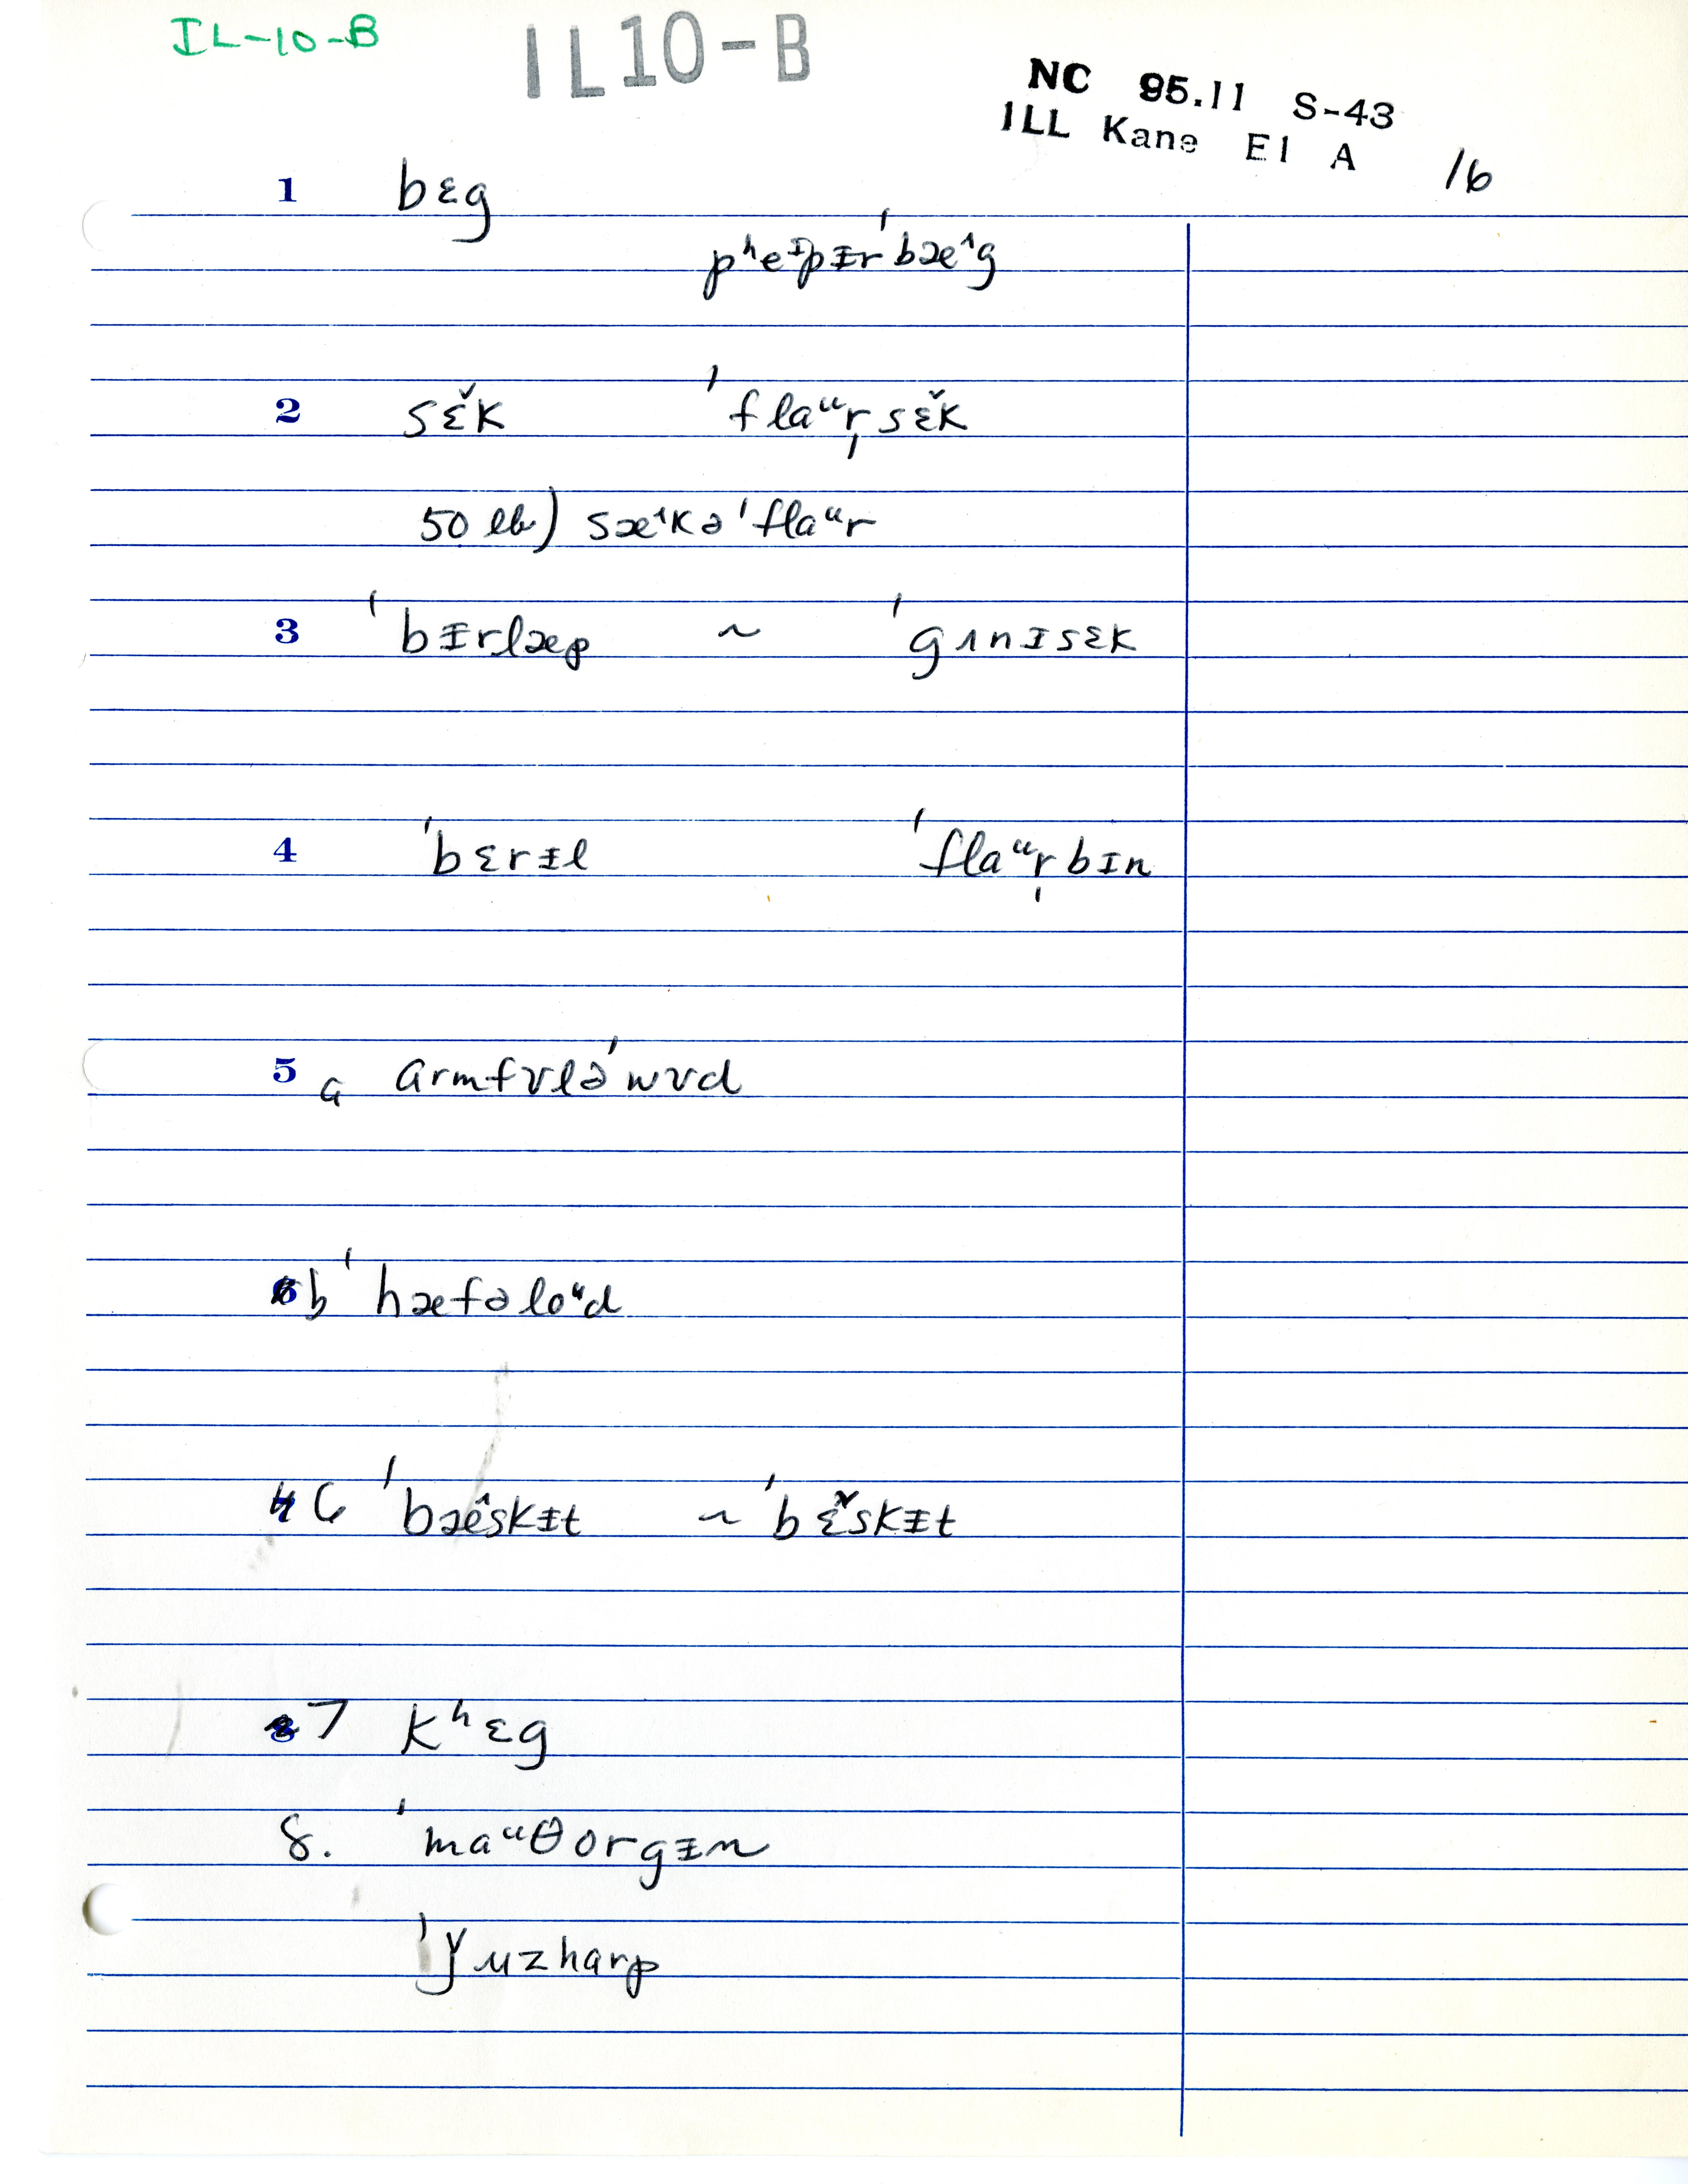 IL-10-B
IL10-B
NC 95.11 S-43
ILL Kane El A 16
1 bɛg
pʰeᶦpɪ̵r ˈbæ^g
2 sɛ̌k ˈflaᵘr̩sɛ̌k
50 lb) sæ^kə ˈflaᵘr
3 ˈbɪ̵rlæp ~ ˈgʌnɪsɛk
4 ˈbɛrɪ̵l ˈflaᵘr̩bɪn
5 a ɑrmfʊləˈwʊd
b ˈhæfəloᵘd
6 ˈbæ̂skɪ̵t ~ ˈbɛ̌skɪ̵t
7 kʰɛg
8. ˈmaᵘθorgɪ̵n
ˈǰuzharp